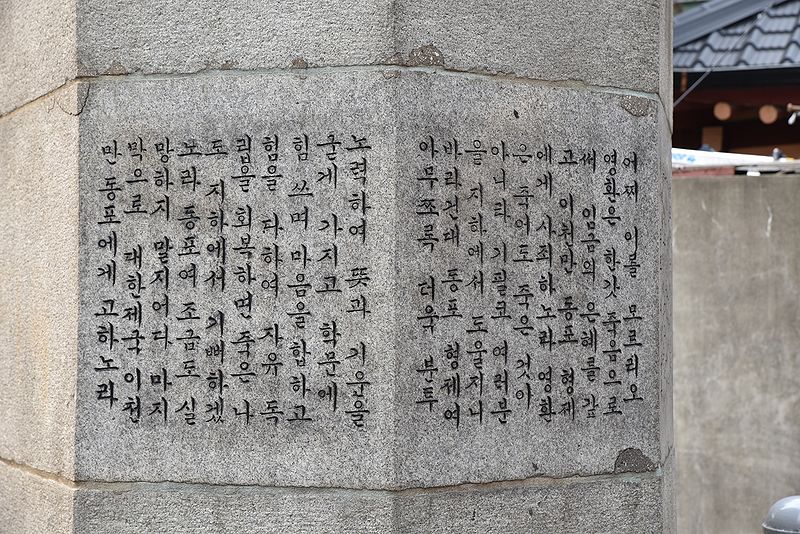 어찌 이를 모르리오
영환은 한갓 죽음으로
써 임금의 은혜를 갚
고 이천만 동포 형제
에게 사죄하노라 영환
은 죽어도 죽은 것이
아니라 기필코 여러분
을 지하에서 도울지니
바라건대 동포 형제여
아무쪼록 더욱 분투
노력하여 뜻과 기운을
굳게 가지고 학문에
힘 쓰며 마음을 합하고
힘을 다하여 자유 독
립을 회복하면 죽은 나
도 지하에서 기뻐하겠
노라 동포여 조금도 실
망하지 말지어다 마지
막으로 대한제국 이천
만 동포에게 고하노라